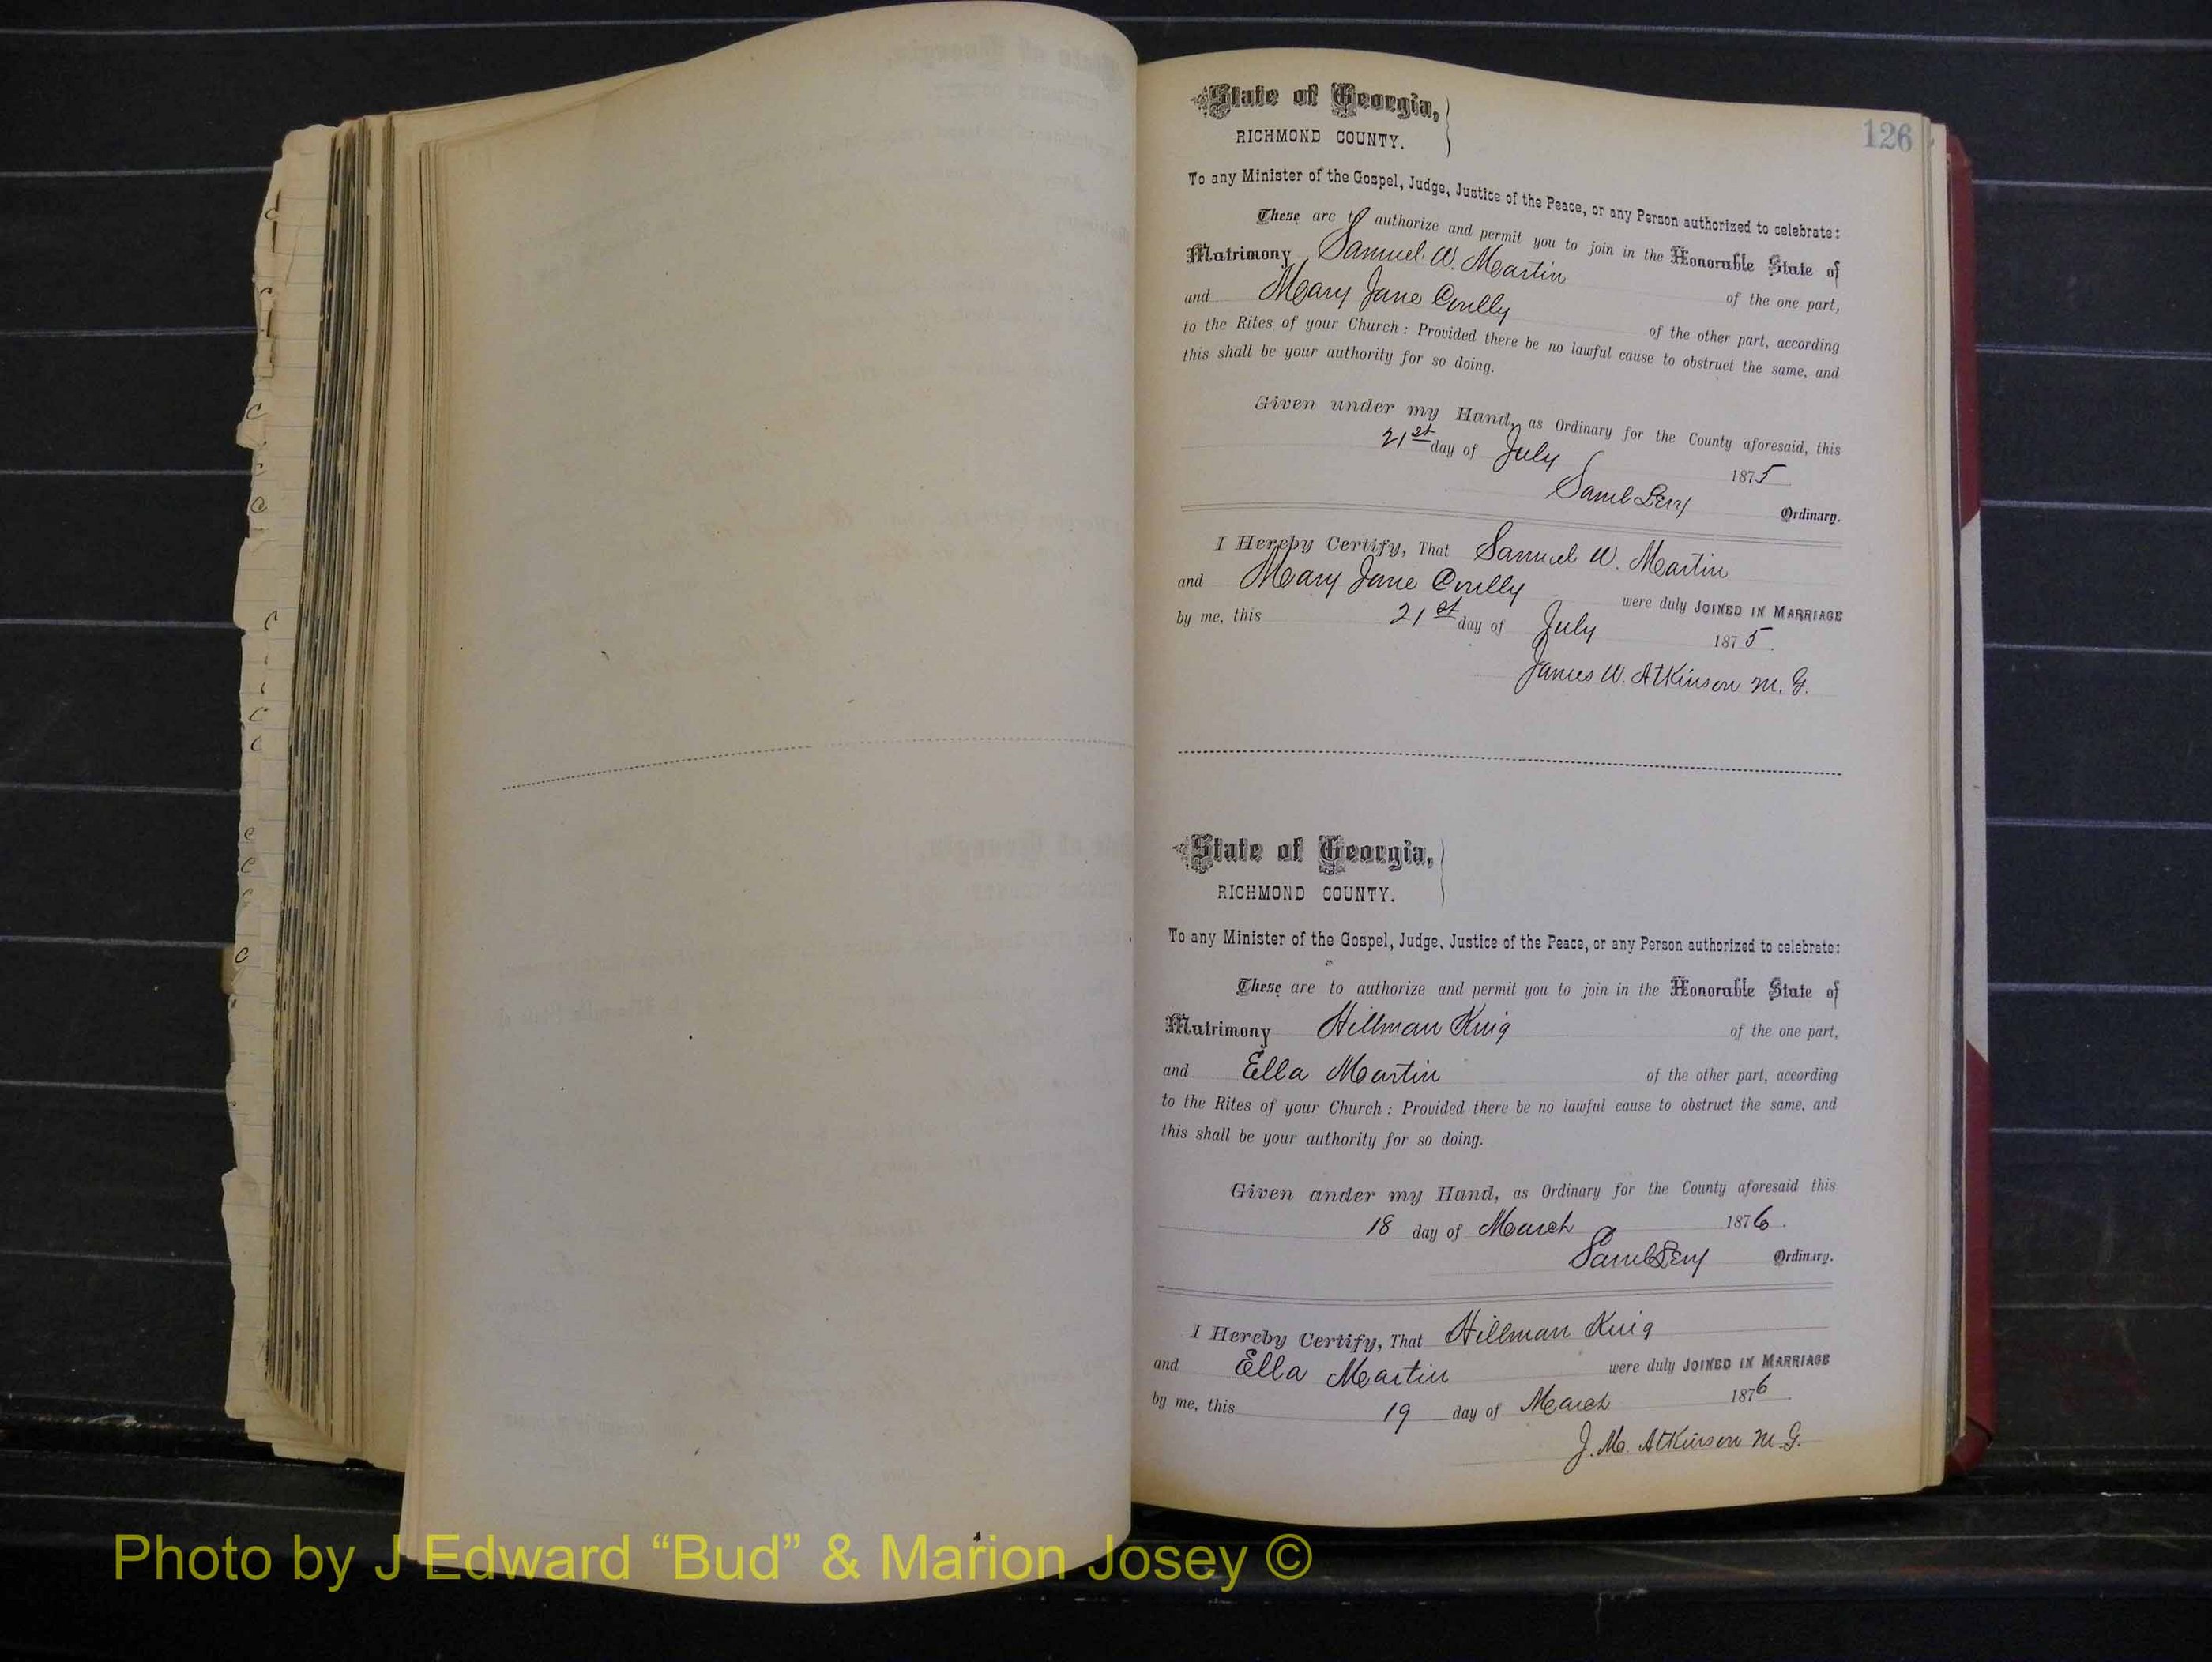 126
State of Georgia,
RICHMOND COUNTY.
To any Minister of the Gospel, Judge, Justice of the Peace, or any Person authorized to celebrate:
These are to authorize and permit you to join in the Honorable State of
Matrimony Samuel W. Martin of the one part,
and Mary Jane of the other part, according
to the Rites of your Church: Provided there be no lawful cause to obstruct the same, and
this shall be your authority for so doing.
Given under my Hand, as Ordinary for the County aforesaid, this
21st day of July 1875
Saml Levy Ordinary.
I Hereby Certify, That Samuel W. Martin
and Mary Jane were duly JOINED IN MARRIAGE
by me, this 21st day of July 1875.
James W. Atkinson M. G.
State of Georgia,
RICHMOND COUNTY.
To any Minister of the Gospel, Judge, Justice of the Peace, or any Person authorized to celebrate:
These are to authorize and permit you to join in the Honorable State of
Matrimony Hillman King of the one part,
and Ella Martin of the other part, according
to the Rites of your Church: Provided there be no lawful cause to obstruct the same, and
this shall be your authority for so doing.
Given under my Hand, as Ordinary for the County aforesaid this
18 day of March 1876.
Saml Levy Ordinary.
I Hereby Certify, That Hillman King
and Ella Martin were duly JOINED IN MARRIAGE
by me, this 19 day of March 1876.
J. M. Atkinson M. G.
Photo by J Edward “Bud” & Marion Josey ©